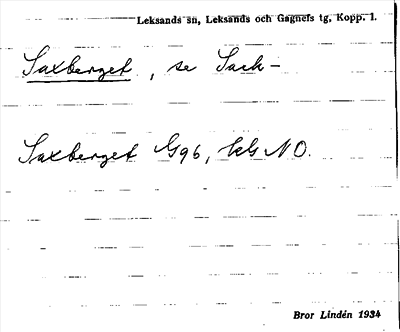 Leksands sn, Leksands och Gagnefs tg, Kopp. l.
Saxberget, se Sack-
Saxberget G96, kb NO.
Bror Lindén 1934